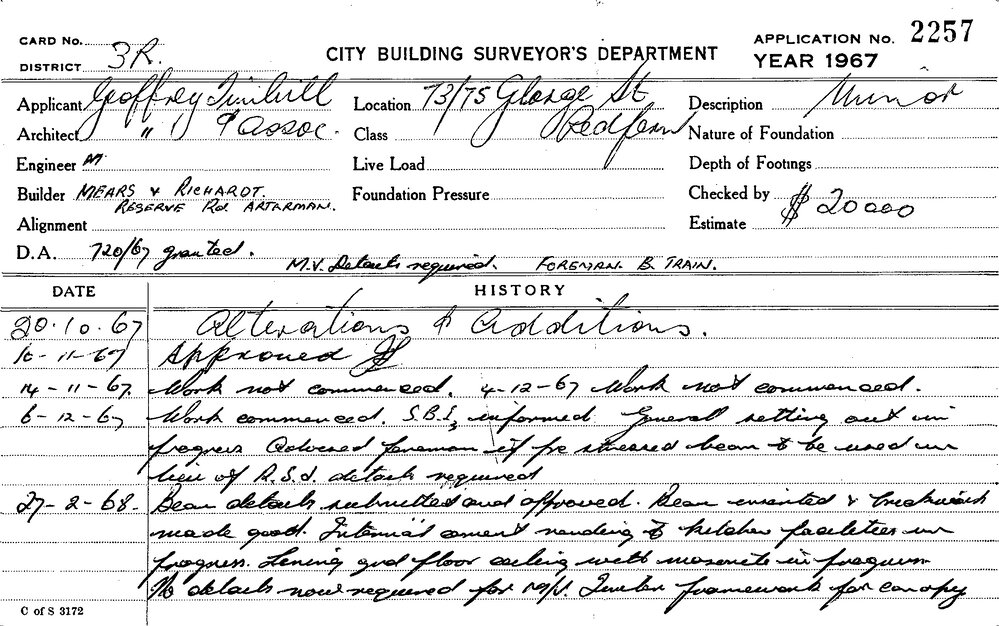 CARD No.
DISTRICT 3R.
CITY BUILDING SURVEYOR'S DEPARTMENT
APPLICATION No. 2257
YEAR 1967
Applicant Geoffrey Twibill Location 73/75 George St Description Minor
Architect " " & Assoc. Class Redfern Nature of Foundation
Engineer Live Load Depth of Footings
Builder MEARS & RICHARDT. Foundation Pressure Checked by
RESERVE Rd. ARTERMAN.
Alignment Estimate $20000
D.A. 720/67 granted.
M.V. Details required. FOREMAN. B. TRAIN.
DATE HISTORY
20.10.67 Alterations & additions.
10-11-67 Approved
14-11-67. Work not commenced. 4-12-67 Work not commenced.
6-12-67 Work commenced. S.B.I. informed General setting out in
progress Advised foreman if pre stressed beam to be used in
lieu of R.S.J. details required
27-2-68. Beam details submitted and approved. Beam & brickwork
made good. Internal cement rendering to kitchen facilities in
progress. Lining grd floor ceiling with masonite in progress
No details now required for M/V. Timber framework for canopy
C of S 3172